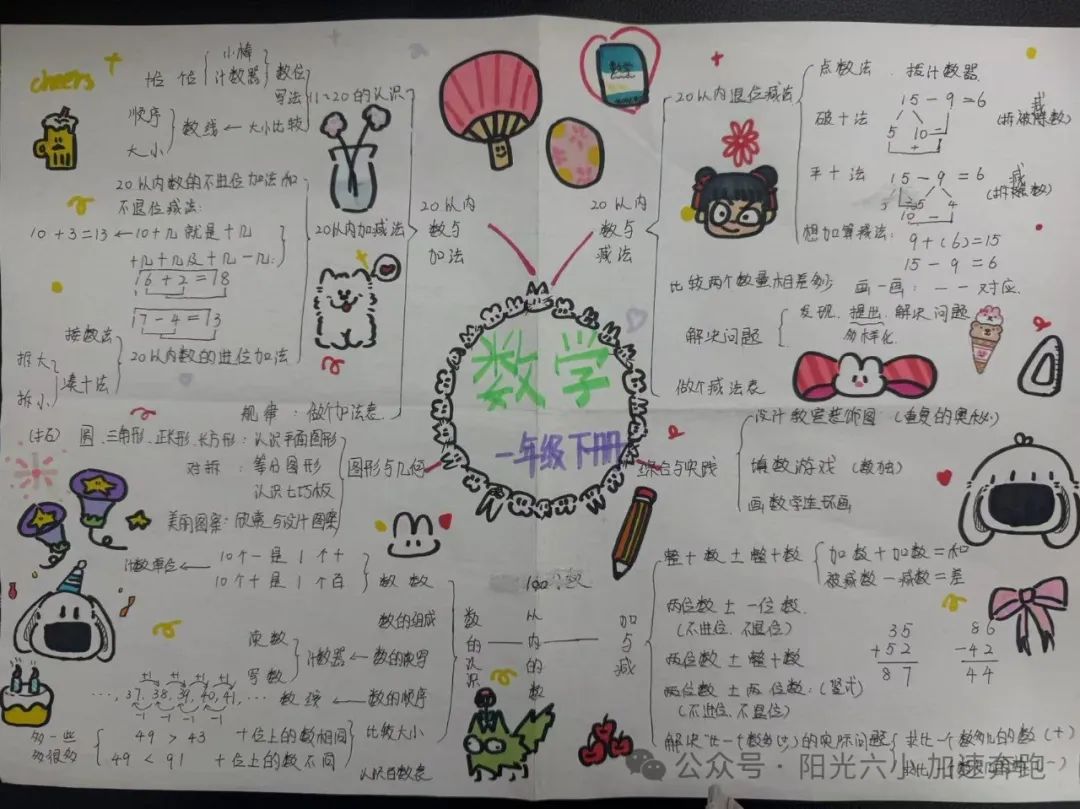 cheers
个位 十位
小棒
计数器
数位
写法
11~20的认识
顺序
大小
数线 ← 大小比较
20以内数的不进位加法和
不退位减法:
10+3=13 ← 10+几就是十几
十几+几及十几-几:
16+2=18
17-4=13
20以内加减法
接数法
拆大
拆小
凑十法
20以内数的进位加法
规律:做个加法表
20以内
数与
加法
数学
20以内
数与
减法
20以内退位减法
点数法:拨计数器
破十法
15-9=6
5 10
+
减
(拆被减数)
平十法
15-9=6
5 5 4
10
减
(拆减数)
想加算减法:
9+(6)=15
15-9=6
比较两个数量相差多少 画一画:一一对应
解决问题
发现、提出、解决问题
多样化
做个减法表
数学
一年级下册
图形与几何
圆、三角形、正方形、长方形:认识平面图形
对折:等分图形
认识七巧板
美丽图案:欣赏与设计图案
综合与实践
设计教室装饰图(重复的奥秘)
填数游戏(数独)
画数学连环画
100以内的数
数的认识
数数
计数单位 ←
10个一是1个十
10个十是1个百
数的组成
读数
写数
计数器 ← 数的读写
+1 +1 +1 +1
…,37,38,39,40,41,… 数线 ← 数的顺序
-1 -1 -1 -1
多一些
多很多
49>43 十位上的数相同
49<91 十位上的数不同
比较大小
认识百数表
加与减
整十数±整十数
加数+加数=和
被减数-减数=差
两位数±一位数
(不进位、不退位)
两位数±整十数
两位数±两位数:(竖式)
(不进位、不退位)
35
+52
87
86
-42
44
解决“比一个数多(少)”的实际问题
求比一个数多几的数(+)
公众号·阳光六小加速奔跑